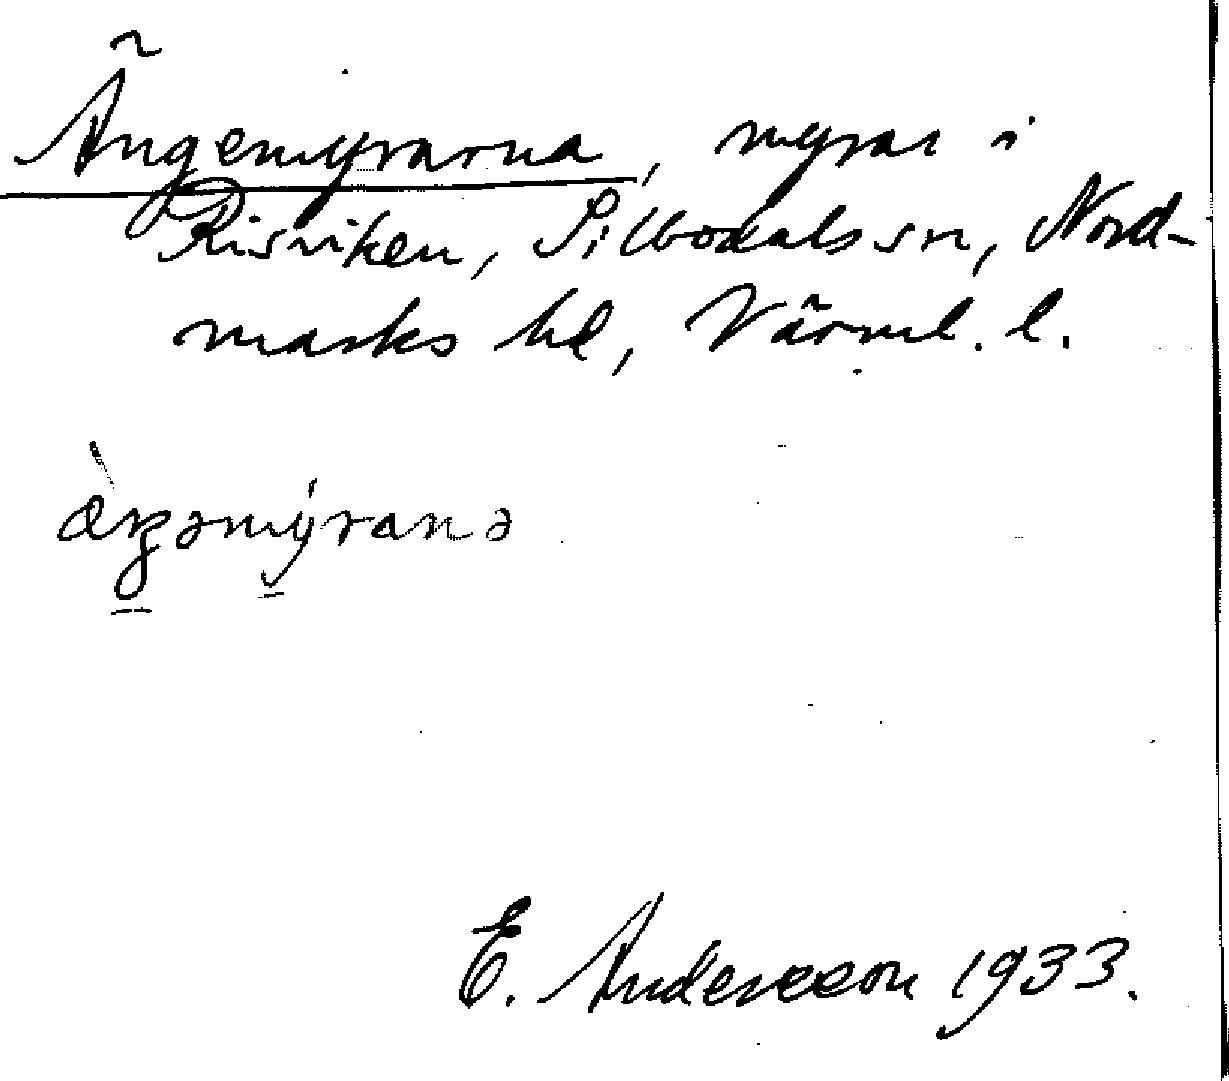 Ängemyrarna, myrar i
Risviken, Silbodals sn, Nord-
marks hd, Värml. l.
E. Andersson 1933.